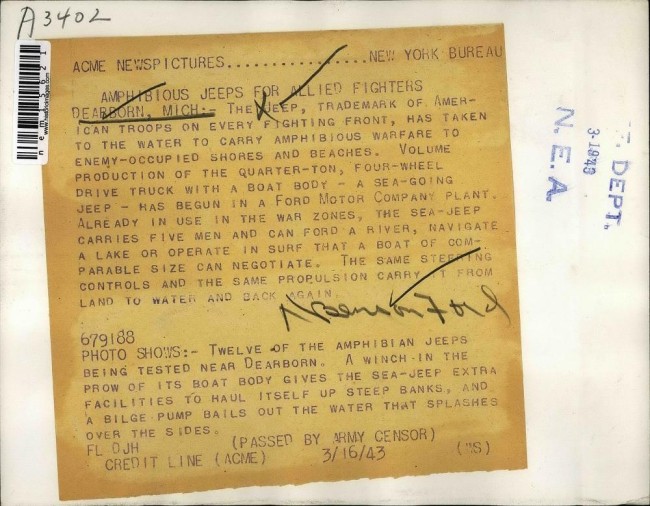 A3402
ACME NEWSPICTURES.................NEW YORK BUREAU
AMPHIBIOUS JEEPS FOR ALLIED FIGHTERS
DEARBORN, MICH:- THE JEEP, TRADEMARK OF AMER-
ICAN TROOPS ON EVERY FIGHTING FRONT, HAS TAKEN
TO THE WATER TO CARRY AMPHIBIOUS WARFARE TO
ENEMY-OCCUPIED SHORES AND BEACHES. VOLUME
PRODUCTION OF THE QUARTER-TON, FOUR-WHEEL
DRIVE TRUCK WITH A BOAT BODY - A SEA-GOING
JEEP - HAS BEGUN IN A FORD MOTOR COMPANY PLANT.
ALREADY IN USE IN THE WAR ZONES, THE SEA-JEEP
CARRIES FIVE MEN AND CAN FORD A RIVER, NAVIGATE
A LAKE OR OPERATE IN SURF THAT A BOAT OF COM-
PARABLE SIZE CAN NEGOTIATE. THE SAME STEERING
CONTROLS AND THE SAME PROPULSION CARRY IT FROM
LAND TO WATER AND BACK AGAIN.
Benson Ford
679188
PHOTO SHOWS:- TWELVE OF THE AMPHIBIAN JEEPS
BEING TESTED NEAR DEARBORN. A WINCH IN THE
PROW OF ITS BOAT BODY GIVES THE SEA-JEEP EXTRA
FACILITIES TO HAUL ITSELF UP STEEP BANKS, AND
A BILGE PUMP BAILS OUT THE WATER THAT SPLASHES
OVER THE SIDES.
FL DJH (PASSED BY ARMY CENSOR)
CREDIT LINE (ACME) 3/16/43 (WS)
DEPT.
N.E.A.